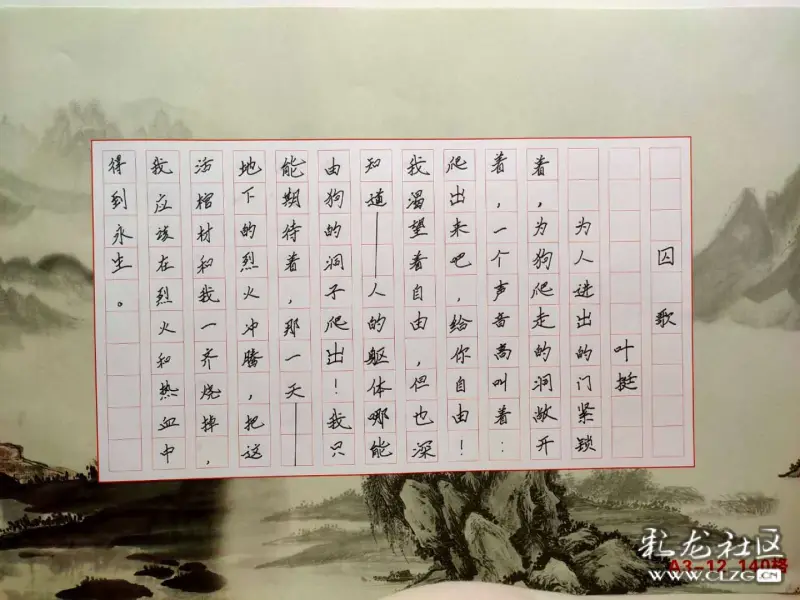 囚歌
叶挺
为人进出的门紧锁
着，为狗爬走的洞敞开
着，一个声音高叫着：
爬出来吧，给你自由！
我渴望着自由，但也深
知道——人的躯体哪能
由狗的洞子爬出！我只
能期待着，那一天——
地下的烈火冲腾，把这
活棺材和我一齐烧掉，
我应该在烈火和热血中
得到永生。
彩龙社区
WWW.CLZG.CN
A3-12 140格